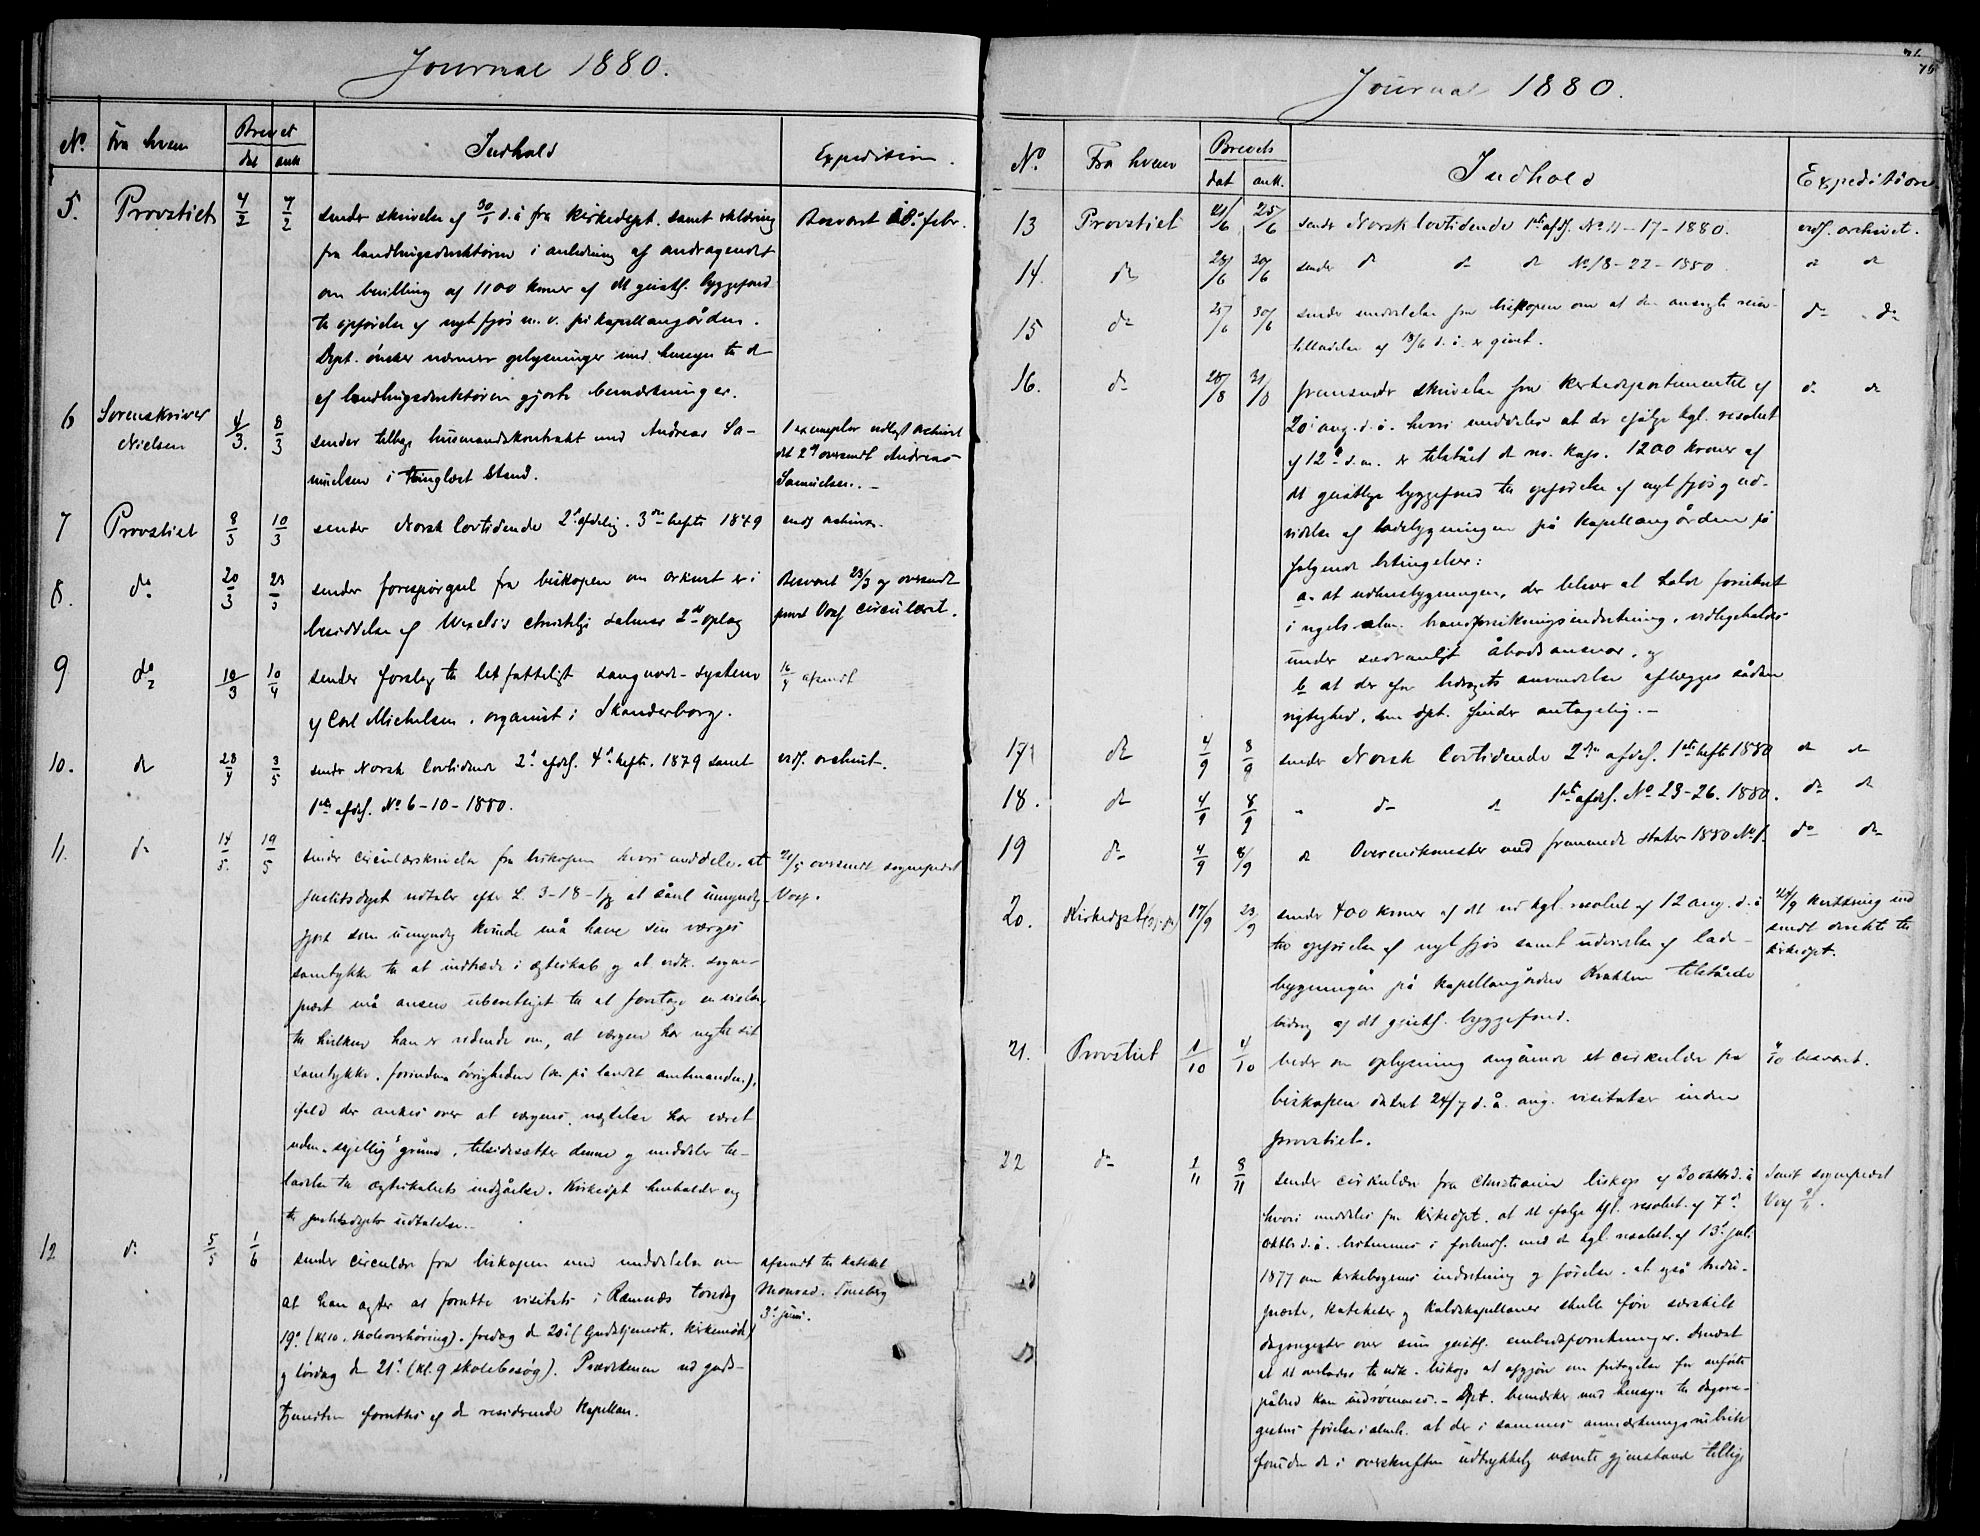 Journal 1880.
No. Fra hvem Brevet dat ank Indhold Expedition.
5. Provstiet 4/2 7/2 sender skrivelse af 30/1 d. å fra Kirkedept. samt erklæring Besvaret 10de febr.
fra landbrugsdirektøren i anledning af andragendet
om bevilling af 1100 kroner af det geistl. byggefond
til opførelse af nyt fjøs m. v. på kapellangården.
Dept. ønsker nærmere oplysninger med hensyn til de
af landbrugsdirektøren gjorte bemærkninger.
6 Sorenskriver Nielsen 4/3. 8/3 sender tilbage husmandskontrakt med Andreas Sa-
muelsen i tinglæst Stand.
1 exemplar vedlagt archivet
det 2det oversendt Andreas
Samuelsen. -
7 Provstiet 8/3 10/3 sender Norsk lovtidende 2den afdeling. 3die hefte 1879 vedl archivet.
8. do 20/3 23/3 sender forespørgsel fra biskopen om arkivet er i
besiddelse af Wexels's christelige salmer 2det oplag
Besvaret 23/3 og oversendt
præst Vogt circulæret.
9 do 10/3 10/4 sender forslag til letfatteligt sangnode-system
af Carl Michelsen. organist i Skanderborg.
16/4 afsendt
10. do 28/4 3/5 sender Norsk lovtidende 2den afdl. 4de hefte. 1879 samt vedl. archivet.
1ste afdl. No 6-10-1880.
11. do 14/5. 19/5 sender circulærskrivelse fra biskopen hvori meddeles. at
justitsdept udtaler efter L. 3-18- at såvel umyndig-
gjort som umyndig kvinde må have sin værges
samtykke til at indtræde i ægteskab og at vedk. sogne-
præst må ansees uberettiget til at foretage en vielse,
til hvilken han er vidende om, at værgen har nægtet sit
samtykke. forinden øvrigheden (på landet amtmanden),
ifald der ankes over at værgens nægtelse har været
uden "skjellig" grund, tilsidesætter denne og meddeler til-
ladelse til ægteskabets indgåelse. Kirkedept henholder sig
til justitsdepts udtalelse. -
21/5 oversendt sognepræst
Vogt.
12 do 5/5 1/6 sender circulære fra biskopen med meddelelse om
at han agter at foretage visitats i Ramnæs torsdag
19de (kl 10. skoleoverhøring). fredag den 20de (Gudstjeneste. kirkemøde)
og lørdag den 21de (kl. 9 skolebesøg). Prædikenen ved guds-
tjenesten forrettes af den residerende Kapellan.
afsendt til kateket
Monrad. Tønsberg
3de juni.
Journal 1880.
No. Fra hvem Brevets dat ank. Indhold Expedition
13 Provstiet 21/6 25/6 sender Norsk lovtidende 1ste afdl. No 11-17-1880. vedl. archivet.
14. do 28/6 30/6 sender do do do No 18-22-1880. do do
15 do 25/6 30/6 sender meddelelse fra biskopen om at den ansøgte reise-
tilladelse af 18/6 d. å. er givet. do do
16. do 28/8 31/8 fremsender skrivelse fra kirkedepartementet af do do
20de aug. d. å. hvori meddeles at der ifølge kgl. resolut
af 12te d. m. er tilstået de res. kap. 1200 kroner af
det geistlige byggefond til opførelse af nyt fjøs og ud-
videlse af ladebygningen på kapellangården på
følgende betingelser:
a. at udhusbygningen, der bliver at holde forsikret
i rigets alm. brandforsikringsindretning, vedligeholdes
under sædvanligt åbodsansvar, og
b at der for bidragets anvendelse aflægges sådan
rigtighed, som dept. finder antagelig. -
17. do 4/9 8/9 sender Norsk lovtidende 2den afdl. 1ste hefte 1880 do do
18. do 4/9 8/9 " do do 1ste afdl. No 23-26. 1880. do do
19 do 4/9 8/9 do Overenskomster med fremmede stater 1880 No 1. do do
20. Kirkedept 17/9 23/9 sender 400 kroner af det ved kgl. resolut af 12 aug. d. å
til opførelse af nyt fjøs samt udvidelse af lade-
bygningen på kapellangården Krakken tilståede
bidrag af det geistl. byggefond.
24/9 kvittering ind
sendt direkte til
kirkedept.
21. Provstiet 1/10 4/10 beder om oplysning angående et cirkulære fra besvaret.
biskopen dateret 24/7 d. å. ang. visitatser inden
provstiet.
22 do 2/11 8/11 sender cirkulære fra Christiania biskop af 30 oktbr. d. å
hvori meddeles fra kirkedept. at det ifølge kgl. resolut. af 7de
oktbr d. å. bestemmes i forbindl. med den kgl. resolut. af 13de jul.
1877 om kirkebøgernes indretning og førelse. at også Andre-
præster, kateketer og kaldskapellaner skulle føre særskilt
dagsregister over sine geistl. embedsforretninger. Desuden
at det overlades til vedk. biskop at afgjøre om fritagelse for anførte
påbud kan indrømmes. - Dept. bemærker med hensyn til dagsre-
gistres førelse i almh. at der i sammes anmærkningsrubrik
foruden de i overskriften udtrykkelig nævnte gjenstande tillige
Sendt sognepræst
Vogt